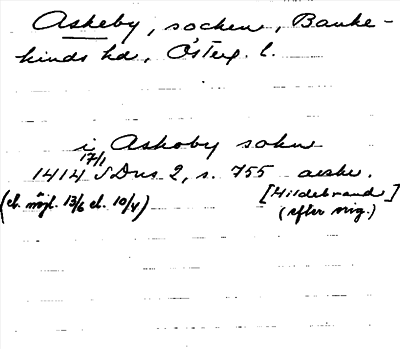 Askeby, socken, Banke-
kinds hd, Österg. l.
i Askoby sokn
17/1
1414 SDns 2, s. 755 avskr.
(el. möjl. 13/6 el. 10/4) [Hildebrand]
(efter orig.)